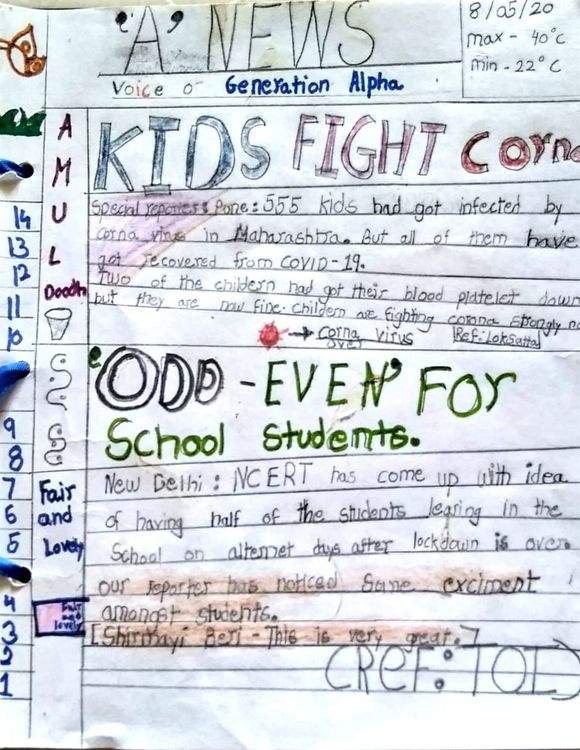 'A' NEWS
8/05/20
max - 40°C
min - 22°C
Voice o Generation Alpha
AMUL
Doodh
KIDS FIGHT Corna
Special reporters: Pune: 555 kids had got infected by
corna virus in Maharashtra. But all of them have
got recovered from COVID-19.
Two of the childern had got their blood platelet down
but they are now fine. Childern are fighting corona strongly
→ Corna virus
over
Ref: Loksatta
'ODD - EVEN' FOR
School Students.
New Delhi: NCERT has come up with idea
of having half of the students learing in the
School on alternet days after lockdown is over.
our reporter has noticad Same exciment
amongst students.
[Shirmayi Beri - This is very great.]
(Ref: TOI)
Fair
and
Lovely
Fair
and
lovely
14
13
12
11
10
9
8
7
6
5
4
3
2
1